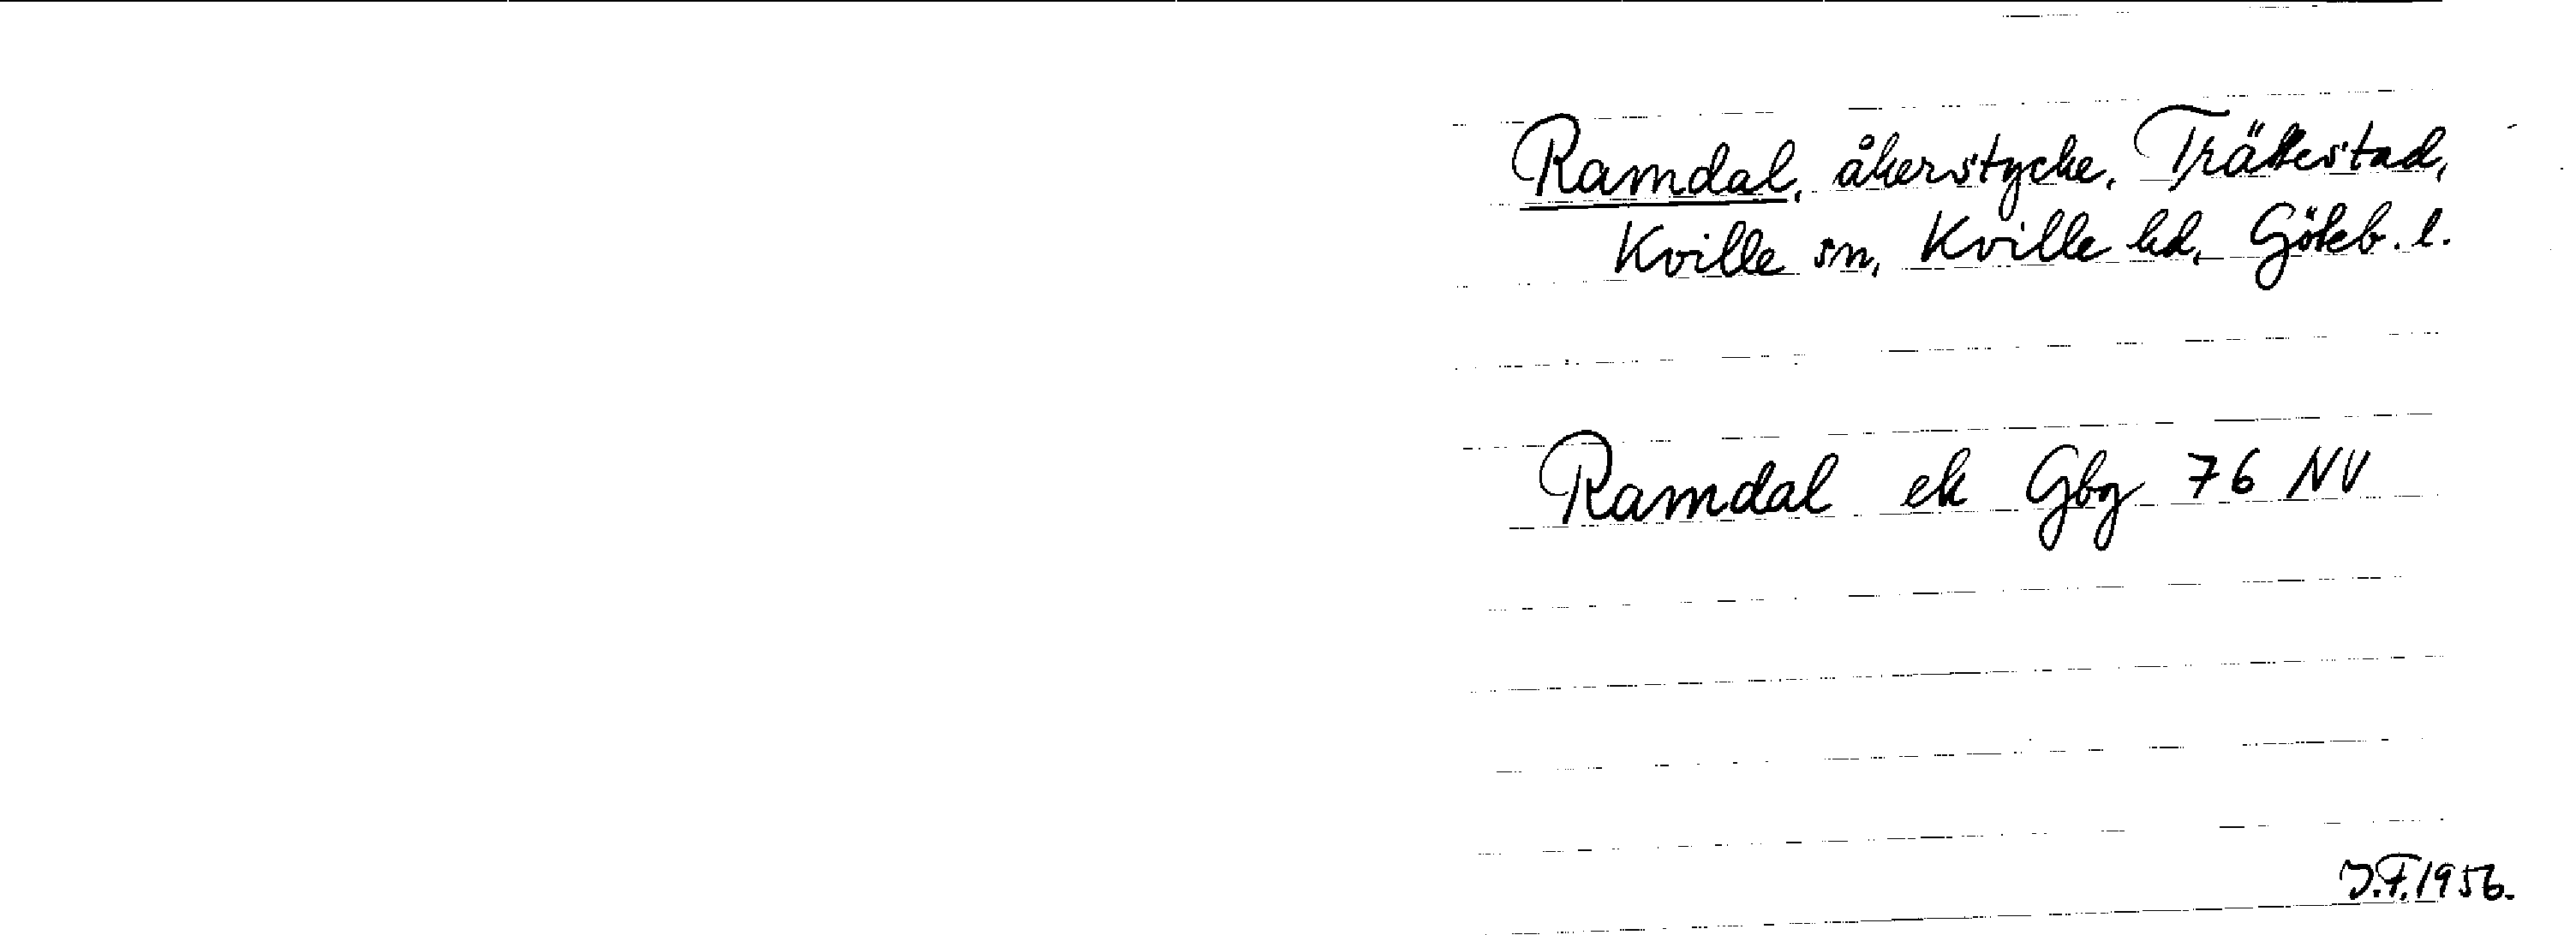 Ramdal, åkerstycke, Trättestad,
Kville sn, Kville hd, Göteb. l.
Ramdal ek Gbg 76 NV
J.F. 1956.